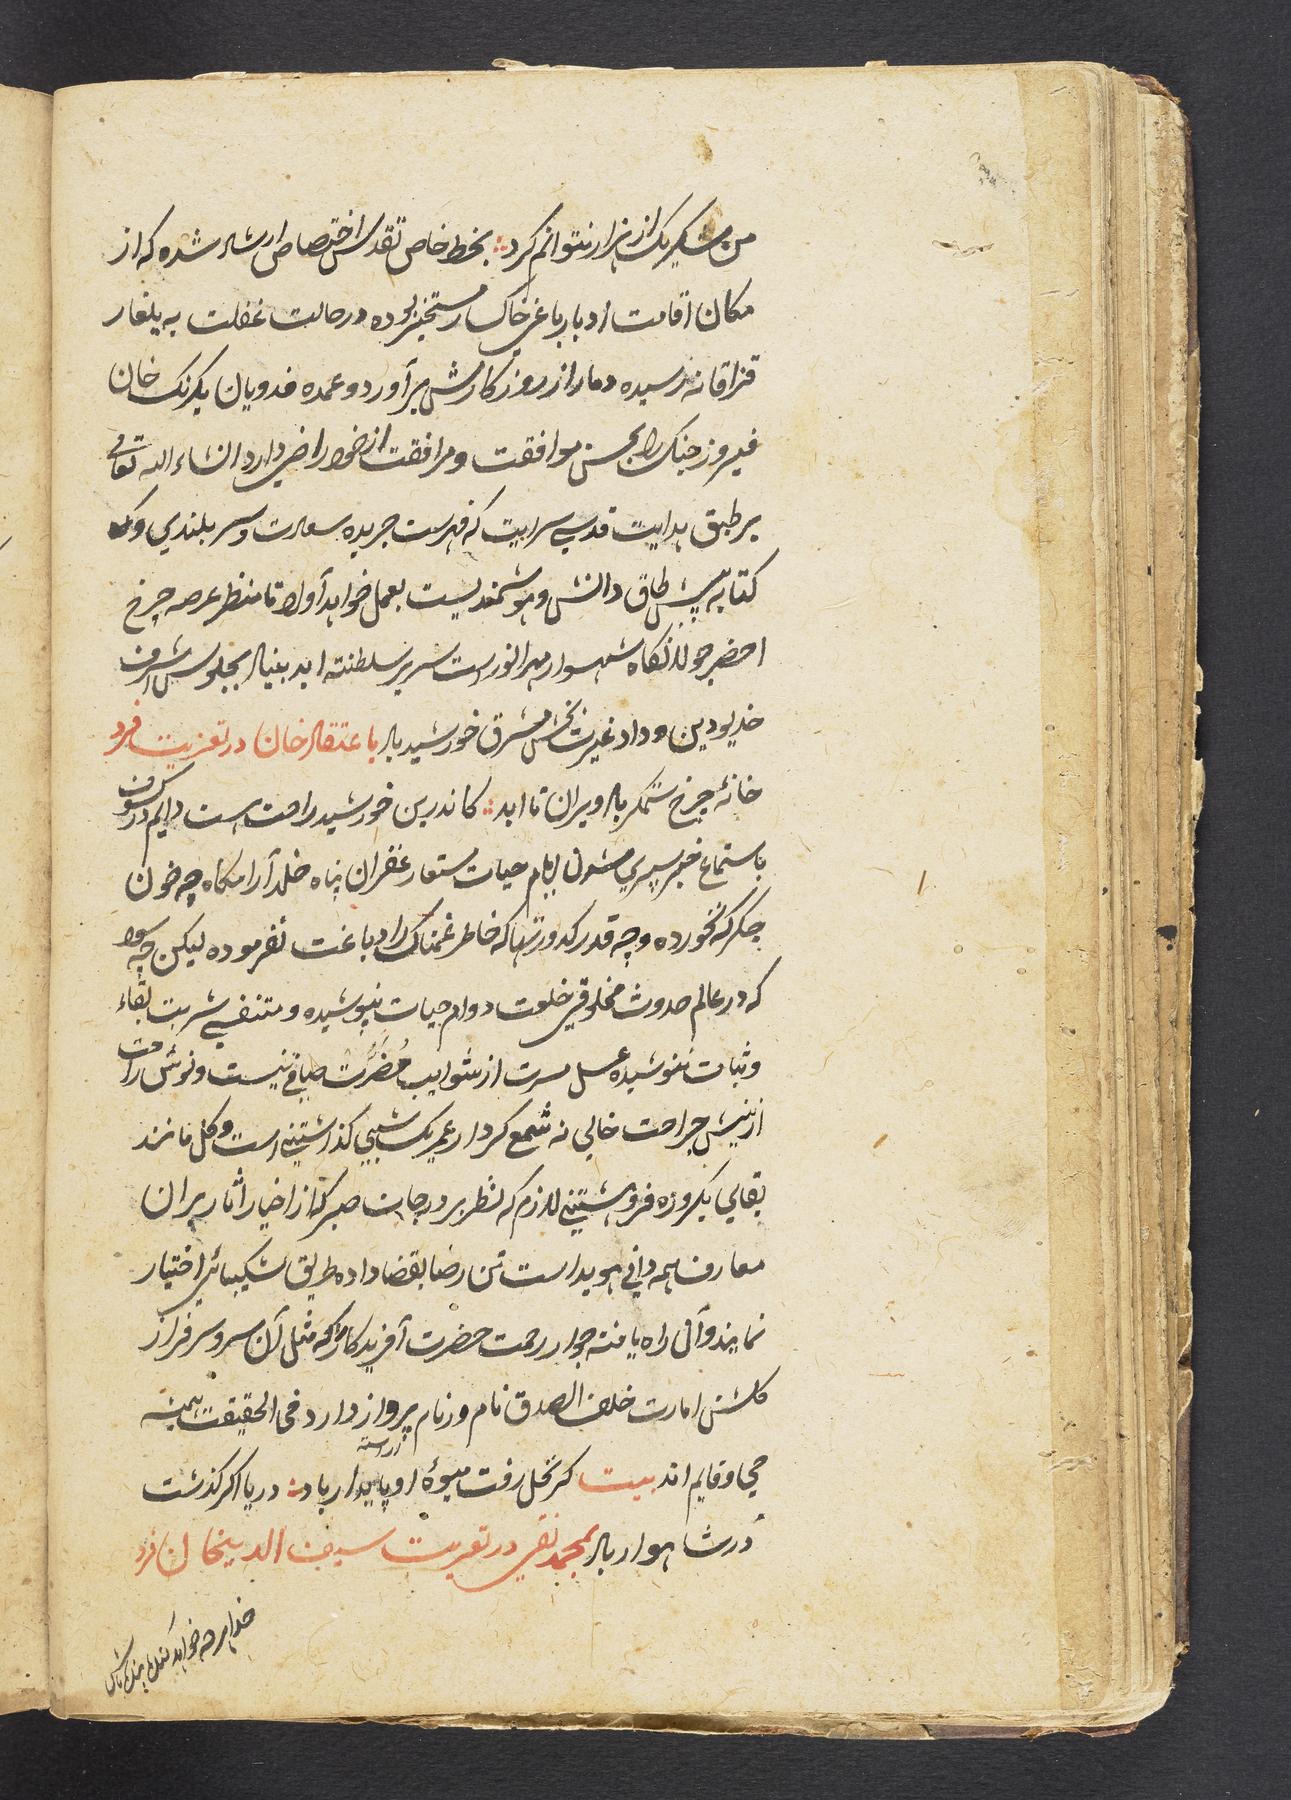 من شکر یک از هزار نتوانم کرد بخط خاص تقدس اختصاص ارشاد شده که از
مکان اقامت ادبار باغی خاکسار مستخبر بوده در حالت غفلت به یلغار
قزاقانه رسیده دمار از روزکارش برآورد و عمده فدویان یکرنک خان
فیروز جنک را بحسن موافقت و مرافقت از خود راضی دارد انشاء الله تعالی
بر طبق هدایت قدسی سرایت که فهرست جریده سعادت و سر بلندی و
کتابه پیش طاق دانش و هوشمندیست بعمل خواهد آورد تا منظر عرصه چرخ
اخضر جولانکاه شهسوار مهر انور است سریر سلطنت ابد بنیاد بجلوس اشرف
خدیو دین و داد غیرت بخش مشرق خورشید باد باعتقاد خان در تعزیت فرد
خانهٔ چرخ ستمکر باد ویران تا ابد کاندرین خورشید راحت هست دایم در کسوف
باستماع خبر سپری شدن ایام حیات مستعار غفران پناه خلد آرامکاه چه خون
جکر که نخورده و چه قدر کدورتها که خاطر غمناک را دباغت نفرموده لیکن چه سود
که در عالم حدوث مخلوقی خلعت دوام حیات نپوشیده و متنفسی شربت بقاء
و ثبات ننوشیده عسل مسرت از شوایب مضرت صافی نیست و نوش راحت
از نیش جراحت خالی نه شمع کردار عمر یک شبی کذاشتنی است و کل مانند
بقای یکروزه فروهشتنی لازم که نظر بر درجات صبر که از اخیار اثار بران
معارف همه دانی هویداست تن رضا بقضا داده طریق شکیبائی اختیار
نمایند و آن راه یافته جوار رحمت حضرت آفریدکار که مثل آن سرو سرفراز
کلشن امارت خلف الصدق نام و رنام پرواز دارد فی الحقیقت همیشه
حی و قایم اند بیت کر نخل رفت میوهٔ او پایدار باد دریا اکر کذشت
در شاهوار باد بمحمد نقی در تعزیت سیف الدینخان فرد
خدا هر چه خواهد کند